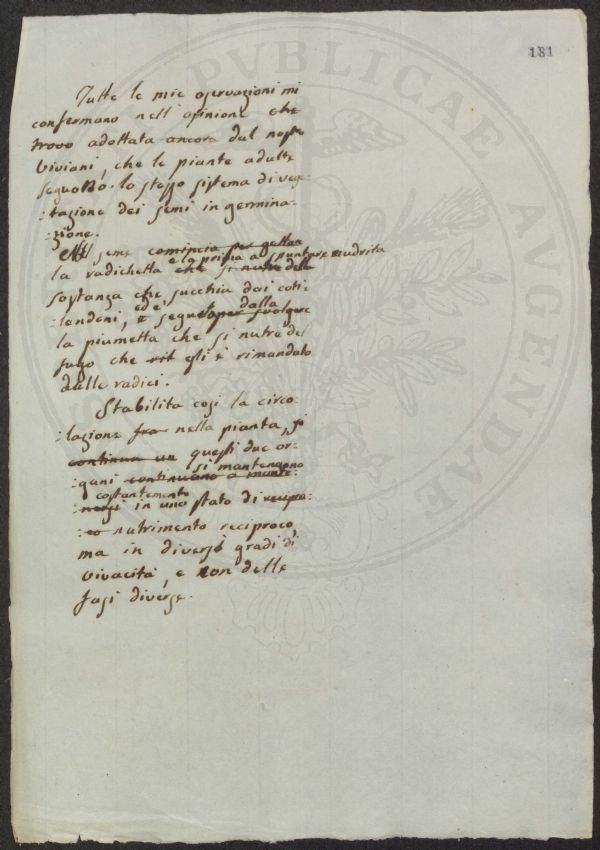 181
Tutte le mie osservazioni mi
confermano nell' opinione che
trovo adottata ancora dal nostro
Viviani, che le piante adulte
seguono lo stesso sistema di vege-
:tazione dei semi in germina-
:zione.
Nel seme comincia per gettare
e la prima a spuntare e nudrita
la radichetta che si nutre della
sostanza che succhia dai coti-
ed e' dalla
:ledoni, e segue per svolgere
la piumetta che si nutre del
sugo che gli è rimandato
dalle radici.
Stabilita così la circo-
:lazione fra nella pianta, si
continua un questi due or-
si mantengono
:gani continuano a mante-
costantemente
:nersi in uno stato di recipro-
:co nutrimento reciproco
ma in diversi gradi di
vivacità, e con delle
fasi diverse.
PUBLICAE AUGENDAE